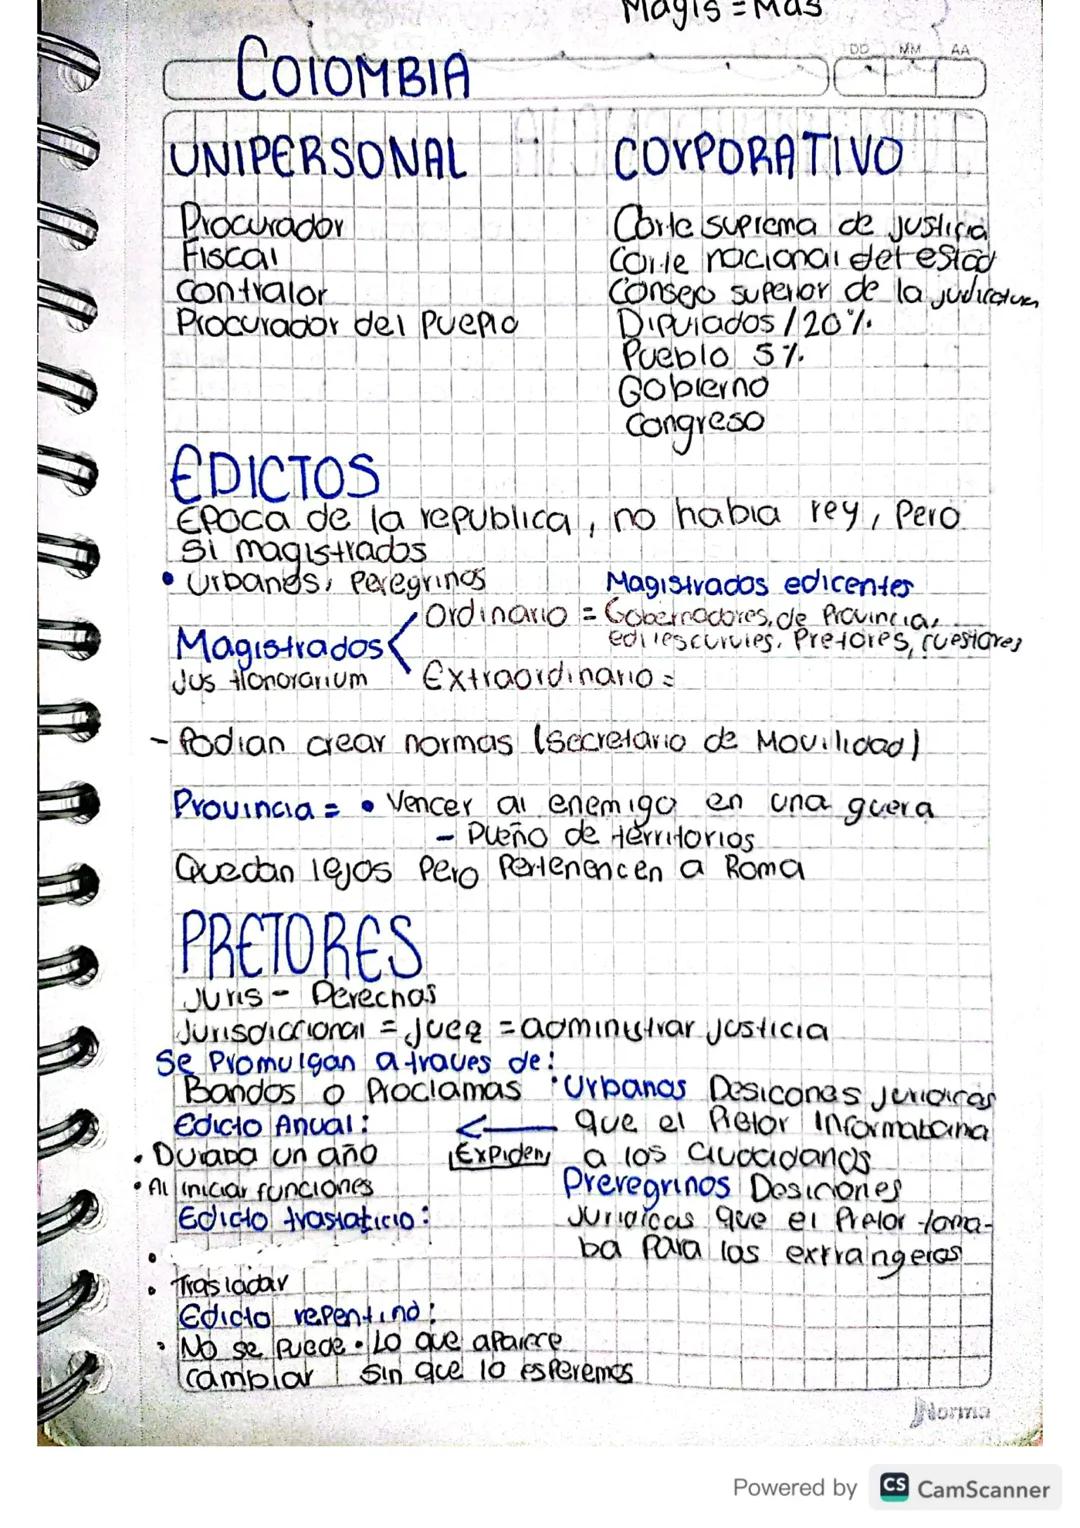 Magis = Mas
DD MM AA
COlOMBIA
UNIPERSONAL
Procurador
Fiscal
contralor
Procurador del Pueplo
COrPORATIVO
Corte suprema de justicia
Corte nacional del estad
Consejo superior de la judicatura
Diputados / 20%.
Pueblo 5%.
Gobierno
congreso
EDICTOS
Epoca de la republica, no habia rey, Pero
si magistrados
• Urbanos, Peregrinos
Magistrados edicentes
Ordinario = Gobernadores, de Provincia,
Pretores, cuestores
Magistrados
Jus Honorarium
Extraordinario =
- Podian crear normas (secretario de Movilidad)
Provincia = • Vencer al enemigo en una guera
- Dueño de territorios
Quedan lejos Pero Pertenencen a Roma
PRETORES
Juris - Derechos
Jurisdiccional = juez = administrar justicia
Se Promulgan a traves de:
Bandos o Proclamas
Edicto Anual:
• Duraba un año
• Al iniciar funciones
Expiden
• Urbanos Desicones juridicas
que el Pretor Informabana
a los Ciudadanos
Preregrinos Desiciones
Juridicas que el Pretor toma-
ba Para los extrangeros
Edicto traslaticio:
• Trasladar
Edicto repentino:
• No se puede
cambiar
• Lo que aparece
sin que lo esperemos
Norma
Powered by CS CamScanner